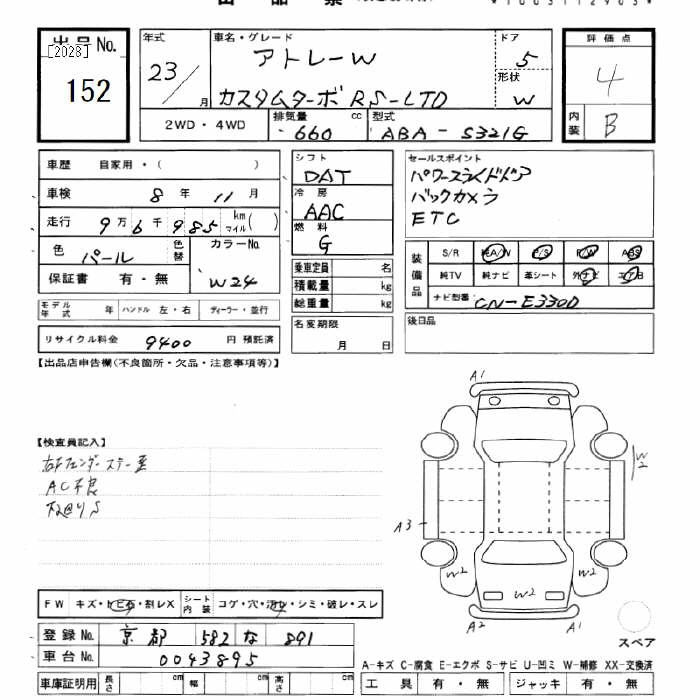 出品票
*1003112903*
出品No.
[2028]
152
年式
23/
月
車名・グレード
アトレーW
カスタムターボ RS-LTD
ドア
5
形状
W
評価点
4
内装
B
2WD・4WD
排気量
660
cc
型式
ABA-S321G
車歴
自家用・( )
車検
8 年 11 月
走行
9万6千985 km マイル( )
色
パール
色替
カラーNo.
W24
保証書
有・無
モデル年式
年
ハンドル 左・右
ディーラー・並行
リサイクル料金
9400
円 預託済
シフト
DAT
冷房
AAC
燃料
G
乗車定員 名
積載量 kg
総重量 kg
名変期限
月 日
セールスポイント
パワースライドドア
バックカメラ
ETC
装備品
S/R 純A/W P/S P/W ABS
純TV 純ナビ 革シート 外ナビ エアB
ナビ型番
CN-E330D
後日品
【出品店申告欄(不良箇所・欠品・注意事項等)】
【検査員記入】
右Fフェンダーステー歪
AC不良
下廻りS
A1
W2
A3
W2
W2
W2
A2
A1
スペア
FW キズ・トビ石・割レX
シート内装
コゲ・穴・汚レ・シミ・破レ・スレ
登録No.
京都 582 な 891
車台No.
0043895
車庫証明用
長さ cm
幅 cm
高さ cm
A-キズ C-腐食 E-エクボ S-サビ U-凹ミ W-補修 XX-交換済
工具 有・無
ジャッキ 有・無